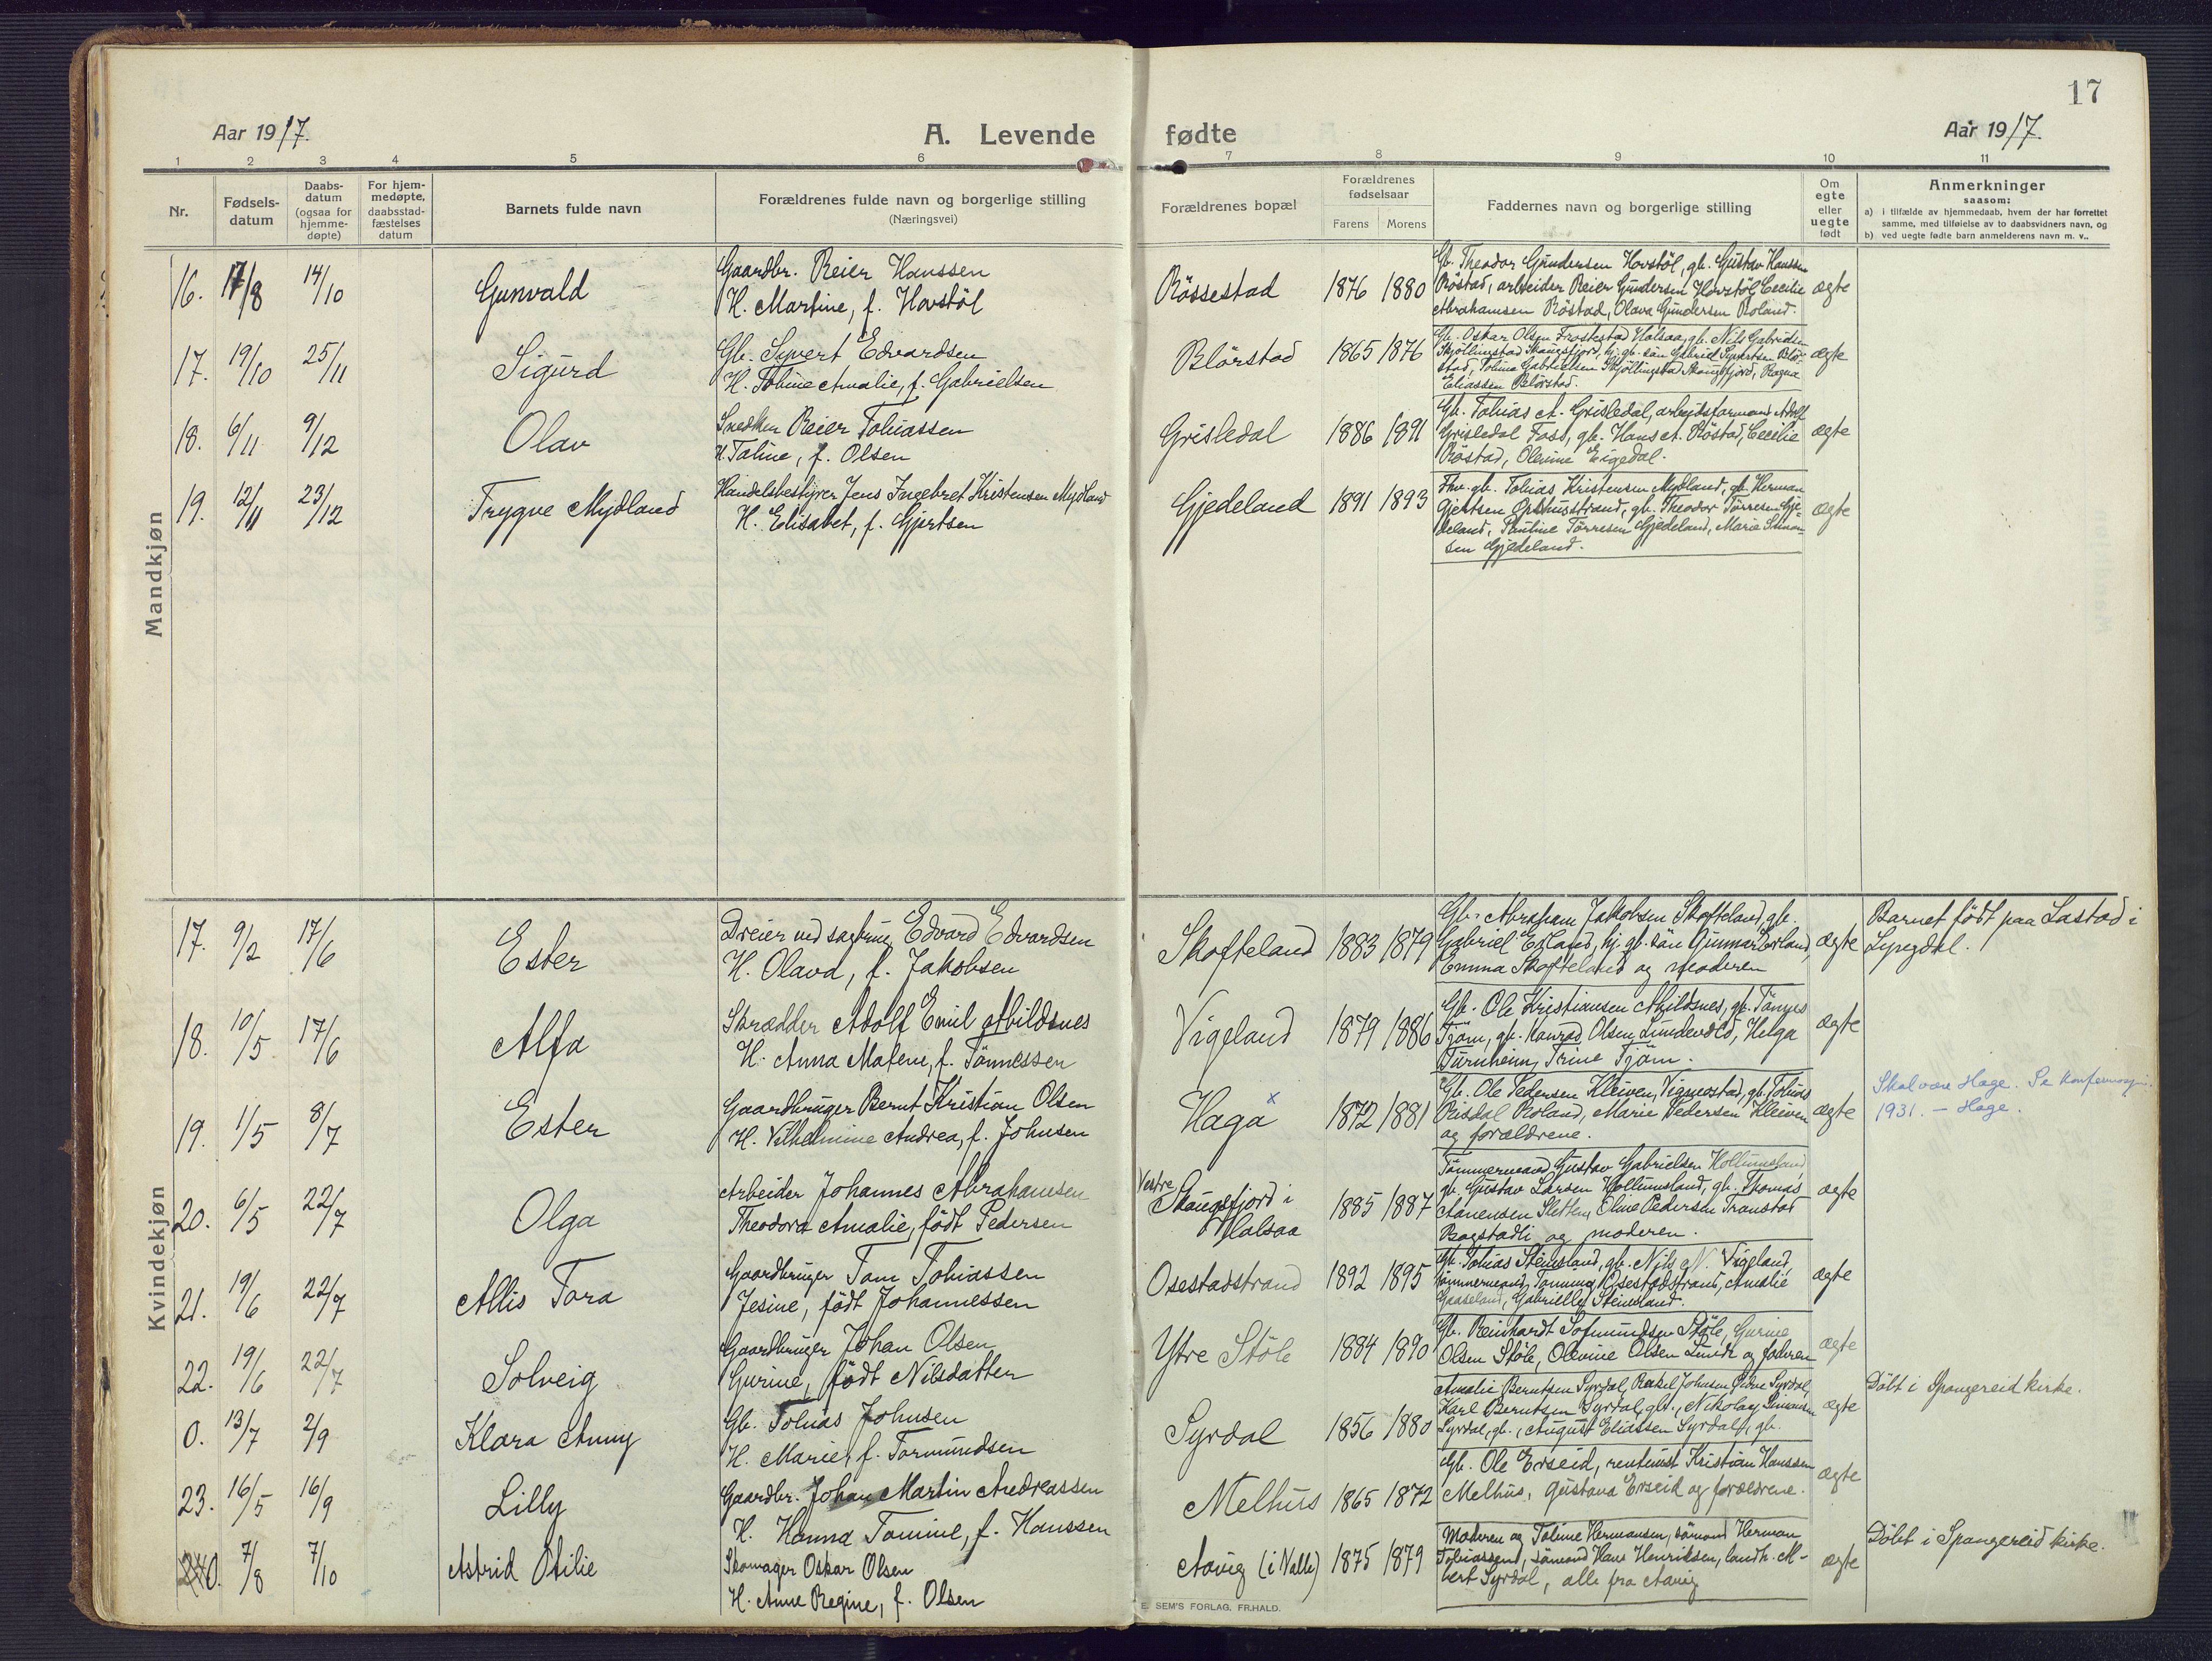 17
Aar 1917.
A. Levende fødte
Aar 1917.
1 2 3 4 5 6 7 8 9 10 11
Nr.
Fødsels-
datum
Daabs-
datum
(ogsaa for
hjemme-
døpte)
For hjem-
medøpte,
daabsstad-
fæstelses
datum
Barnets fulde navn
Forældrenes fulde navn og borgerlige stilling
(Næringsvei)
Forældrenes bopæl
Forældrenes
fødselsaar
Farens Morens
Faddernes navn og borgerlige stilling
Om
egte
eller
uegte
født
Anmerkninger
saasom:
a) i tilfælde av hjemmedaab, hvem der har forrettet
samme, med tilføielse av to daabsvidners navn, og
b) ved uegte fødte barn anmelderens navn m. v..
Mandkjøn
16. 17/8 14/10 Gunvald
Gaardbr. Reier Hanssen
H. Martine, f. Hovstöl
Rössestad 1876 1880
Gb. Theodor Gundersen Hovstöl, gb. Gustav Hanssen
Röstad, arbeider Reier Gundersen Hovstöl, Cecilie
Abrahamsen Röstad, Olava Gundersen Roland.
ægte
17. 19/10 25/11 Sigurd
Gb. Syvert Edvardsen
H. Tobine Amalie, f. Gabrielsen
Blörstad 1865 1876
Gb. Oskar Olsen Frostestad Halsaa, gb. Nils Gabrielsen
Skjöllingstad Skaugsfjord, hj. gb. sön Gabriel Syvertsen Blör-
stad, Tobine Gabrielsen Skjöllingstad Skaugsfjord, Ragna
Eliassen Blörstad.
ægte
18. 6/11 9/12 Olav
Snedker Reier Tobiassen
H. Taline, f. Olsen
Grisledal 1886 1891
Gb. Tobias A. Grisledal, arbeidsformand Adolf
Grisledal Foss, gb. Hans A. Röstad, Cecilie
Röstad, Olevine Eigedal.
ægte
19. 12/11 23/12 Trygve Mydland
Handelsbestyrer Jens Ingebret Kristensen Mydland
H. Elisabet, f. Gjertsen
Gjedeland 1891 1893
Fhv. gb. Tobias Kristensen Mydland, gb. Herman
Gjertsen Ophusstrand, gb. Theodor Törresen Gje-
deland, Pauline Törresen Gjedeland, Marie Simon-
sen Gjedeland.
ægte
Kvindekjøn
17. 9/2 17/6 Ester
Dreier ved sagbrug Edvard Edvardsen
H. Olava, f. Jakobsen
Skofteland 1883 1879
Gb. Abraham Jakobsen Skofteland, gb.
Gabriel Erland, hj. gb. sön Gunnar Erland,
Emma Skofteland og moderen
ægte
Barnet födt paa Lastad i
Lyngdal.
18. 10/5 17/6 Alfa
Skrædder Adolf Emil Abildsnes
H. Anna Malene, f. Tönnessen
Vigeland 1879 1886
Gb. Ole Kristiansen Abildsnes, gb. Tönnes
Tjöm, gb. Konrad Olsen Lundevold, Helga
Turnheim, Trine Tjöm.
ægte
19. 1/5 8/7 Ester
Gaardbruger Bernt Kristian Olsen
H. Vilhelmine Andrea, f. Johnsen
Haga x 1872 1881
Gb. Ole Pedersen Kleiven, Vigmostad, gb. Tobias
Risdal Roland, Marie Pedersen Kleiven
og forældrene.
ægte
Skal være Hage. Se konfermasj.
1931. – Hage.
20. 6/5 22/7 Olga
Arbeider Johannes Abrahamsen
Theodora Amalie, födt Pedersen
Vestre
Skaugsfjord i
Halsaa
1885 1887
Tömmermand Gustav Gabrielsen Hollumsland,
gb. Gustav Larsen Hollumsland, gb. Thomas
Aanensen Sletten, Oline Pedersen Transtad
Bagstadli og moderen.
ægte
21. 19/6 22/7 Allis Tora
Gaardbruger Tom Tobiassen
Jesine, födt Johannessen
Osestadstrand 1892 1895
Gb. Tobias Stensland, gb. Nils N. Vigeland,
tömmermand Tomming Osestadstrand, Amalie
Gaaseland, Gabrielle Stensland.
ægte
22. 19/6 22/7 Solveig
Gaardbruger Johan Olsen
Gurine, födt Nilsdatter
Ytre Stöle 1884 1890
Gb. Reinhardt Sofmundsen Stöle, Gurine
Olsen Stöle, Olevine Olsen Lunde og faderen
ægte
0. 13/7 2/9 Klara Anny
Gb. Tobias Johnsen
H. Marie, f. Tormundsen
Syrdal 1856 1880
Amalie Berntsen Syrdal, Rakel Johnsen Syrdal,
Karl Berntsen Syrdal, gb., Nikolay Simonsen
Syrdal, gb., August Eliassen Syrdal, gb.
ægte
Döbt i Spangereid kirke.
23. 16/5 16/9 Lilly
Gaardbr. Johan Martin Andreassen
H. Hanna Tomine, f. Hanssen
Melhus 1865 1872
Gb. Ole Erseid, rentenist Kristian Hanssen
Melhus, Gustava Erseid og forældrene.
ægte
0. 7/8 7/10 Astrid Otilie
Skomager Oskar Olsen
H. Anne Regine, f. Olsen
Aavig (i Valle) 1875 1879
Moderen og Toline Hermansen, sömand Herman
Tobiassen, sömand Hans Henriksen, landh. Al-
bert Syrdal, alle fra Aavig
ægte
Döbt i Spangereid kirke.
E. SEM'S FORLAG, FR.HALD.